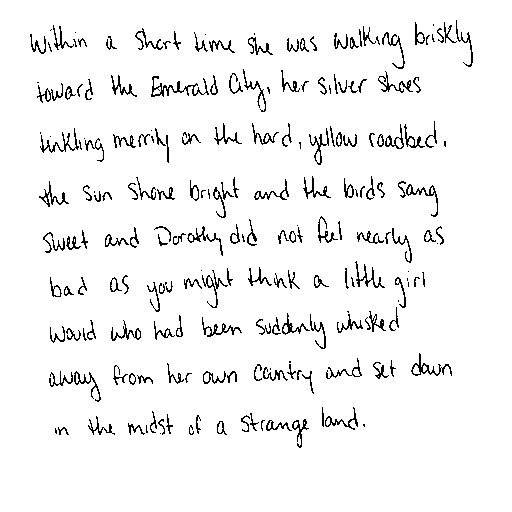 Within a short time she was walking briskly
toward the Emerald City, her silver shoes
tinkling merrily on the hard, yellow roadbed.
the sun shone bright and the birds sang
sweet and Dorothy did not feel nearly as
bad as you might think a little girl
would who had been suddenly whisked
away from her own country and set down
in the midst of a strange land.